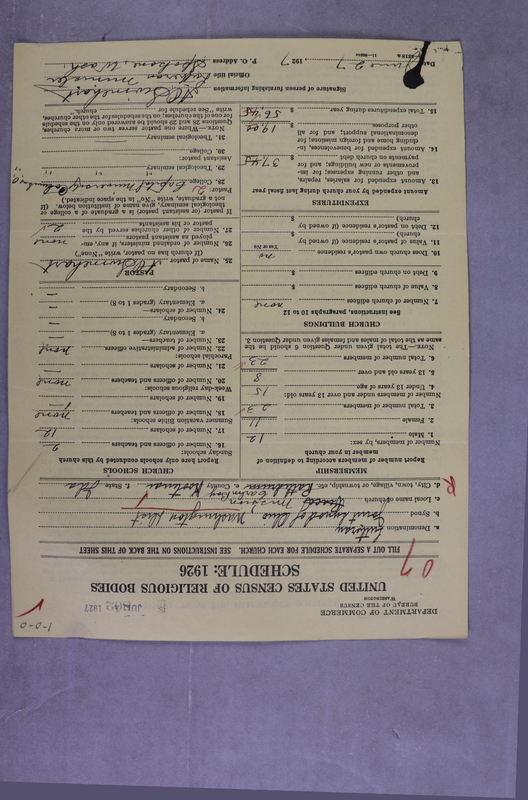 1-0-0
DEPARTMENT OF COMMERCE
BUREAU OF THE CENSUS
WASHINGTON
1927
UNITED STATES CENSUS OF RELIGIOUS BODIES
SCHEDULE: 1926
FILL OUT A SEPARATE SCHEDULE FOR EACH CHURCH. SEE INSTRUCTIONS ON THE BACK OF THIS SHEET
a. Denomination Lutheran
b. Synod Joint Synod of Ohio, Washington Dist
c. Local name of church Mission
d. City, town, village, or township, etc. Rathdrum e. County Kootenai f. State Ida
MEMBERSHIP
Report number of members according to definition of member in your church
Number of members, by sex:
1. Male 12
2. Female 11
3. Total number of members 23
Number of members under and over 13 years old:
4. Under 13 years of age 15
5. 13 years old and over 8
6. Total number of members 23
NOTE.—The total given under Question 6 should be the same as the total of males and females given under question 3.
CHURCH BUILDINGS
See instructions, paragraphs 10 to 12
7. Number of church edifices none
8. Value of church edifices $
9. Debt on church edifices $
10. Does church own pastor's residence no
Yes or No
11. Value of pastor's residence (if owned by church) $
12. Debt on pastor's residence (if owned by church) $
EXPENDITURES
Amount expended by your church during last fiscal year
13. Amount expended for salaries, repairs, and other running expenses; for improvements or new building; and for payments on church debt $ 37.45
14. Amount expended for benevolences, including home and foreign missions; for denominational support; and for all other purpose $ 19.00
15. Total expenditures during year $ 56.45
CHURCH SCHOOLS
Report here only schools conducted by this church
Sunday schools:
16. Number of officers and teachers 2
17. Number of scholars 12
Summer vacation Bible schools:
18. Number of officers and teachers none
19. Number of scholars
Week-day religious schools:
20. Number of officers and teachers none
21. Number of scholars
Parochial schools:
22. Number of administrative officers none
23. Number of teachers—
a. Elementary (grades 1 to 8)
b. Secondary
24. Number of scholars—
a. Elementary (grades 1 to 8)
b. Secondary
PASTOR
25. Name of pastor
(If church has no pastor, write "None")
26. Number of ordained ministers, if any, employed as assistant pastors none
27. Number of other churches served by the pastor or his assistants 2
If pastor (or assistant pastor) is a graduate of a college or theological seminary, give name of institution below. (If not a graduate, write "No" in the space indicated).
Pastor:
28. College Capital University Columbus, O.
29. Theological seminary " "
Assistant pastor:
30. College
31. Theological seminary
NOTE.—Where one pastor serves two or more churches, Questions 28 and 29 should be answered only on the schedule for one of the churches; on the schedules for the other churches, write "See schedule for church."
Signature of person furnishing information
Official title Lutheran minister
P. O. Address Spokane, Wash.
Date June 27, 1927